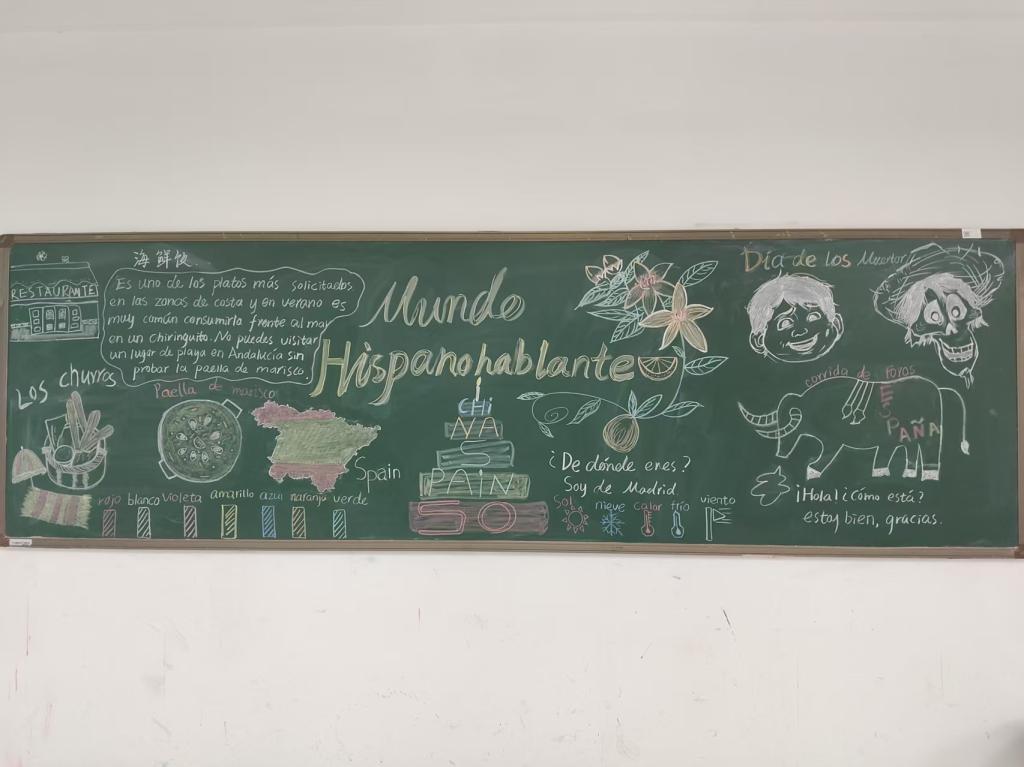 海鲜饭
RESTAURANTE
Es uno de los platos más solicitados
en las zonas de costa y en verano es
muy común consumirla frente al mar
en un chiringuito. No puedes visitar
un lugar de playa en Andalucía sin
probar la paella de marisco.
Los churros
Paella de marisco
Spain
rojo blanco violeta amarillo azul naranja verde
Mundo
Hispanohablante
CHI
NA
S
PAIN
50
¿De dónde eres?
Soy de Madrid
Sol nieve calor frío viento
Día de los Muertos
corrida de toros
ESPAÑA
¡Hola! ¿Cómo está?
estoy bien, gracias.